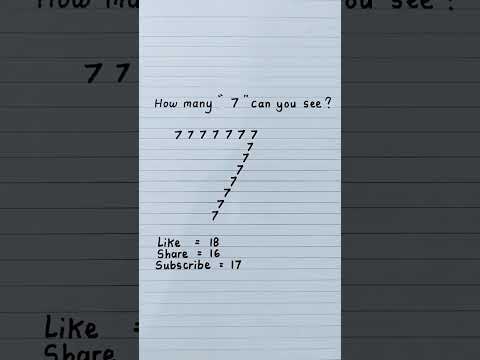 How many " 7 " can you see ?
7 7 7 7 7 7 7
7
7
7
7
7
7
7
Like = 18
Share = 16
Subscribe = 17